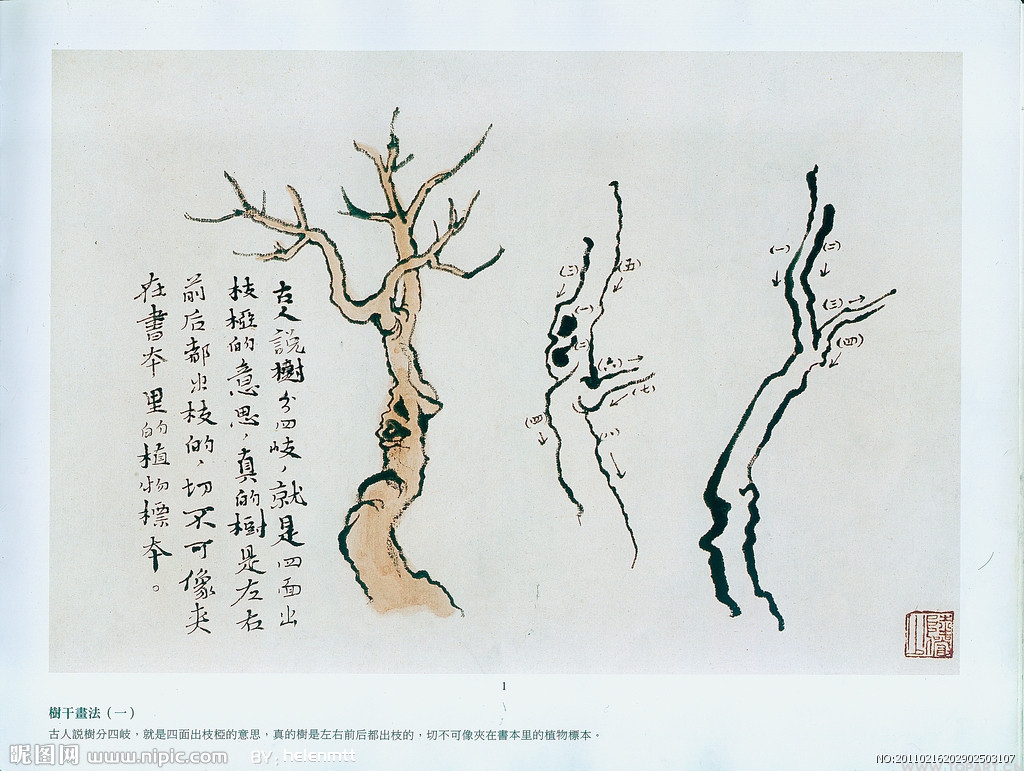 古人説樹分四歧，就是四面出
枝椏的意思，真的樹是左右
前后都出枝的，切不可像夾
在書本里的植物標本。
(三)
(五)
(一)
(二)
(六)
(七)
(四)
(八)
(一)
(二)
(三)
(四)
1
樹干畫法（一）
古人説樹分四岐，就是四面出枝椏的意思，真的樹是左右前后都出枝的，切不可像夾在書本里的植物標本。
昵图网 www.nipic.com BY: helenmtt
NO:20110216202902503107